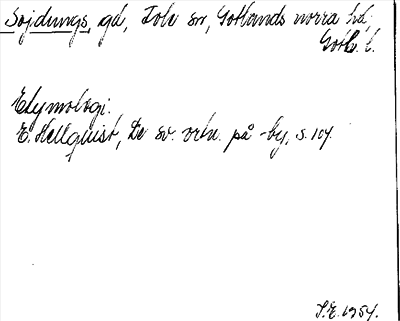 Sojdungs, gd, Tole sn, Gotlands norra hd,
Gotl. l.
Etymologi:
E. Hellquist, De sv. ortn. på -by, s. 104.
S.E. 1954.